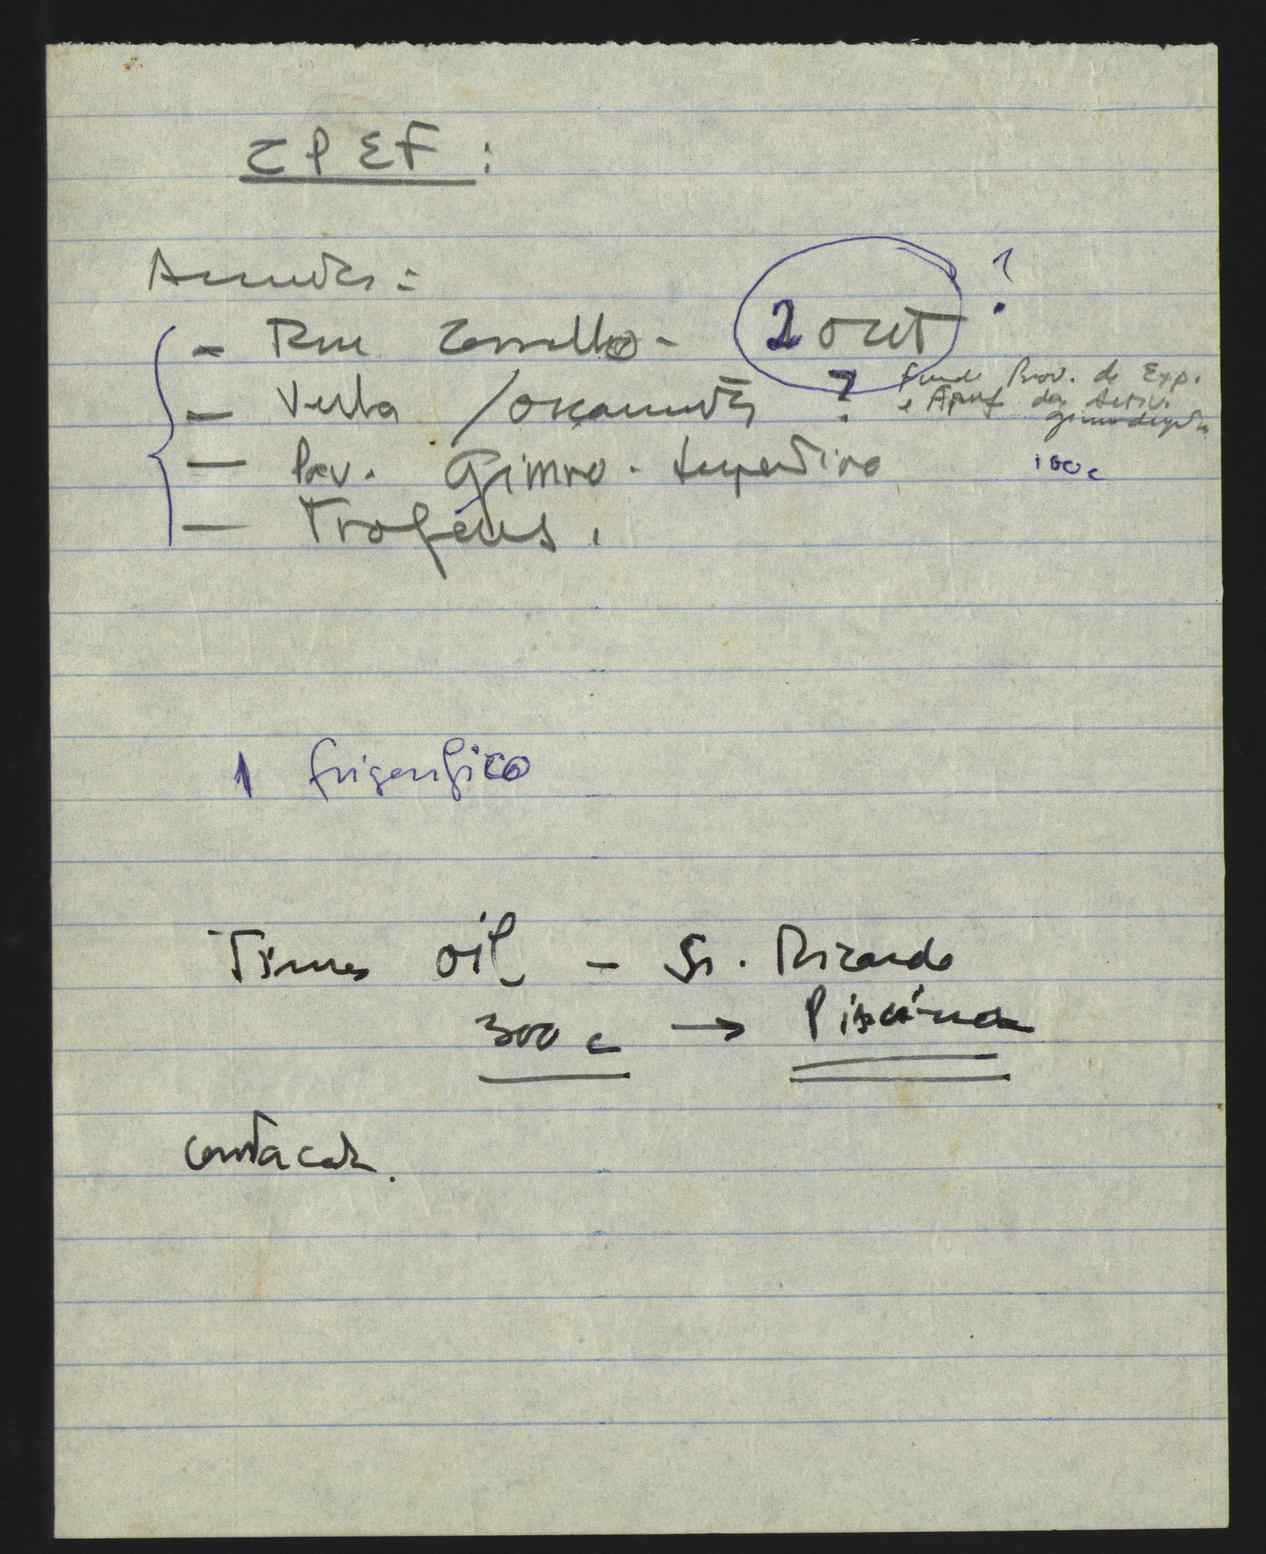 CPEF :
Assuntos :
- Ten Carvalho - 2 out ?
- Verba / orçamentos ? Fundo Prov. de Exp.
e Apref das activ.
gimnodesportivas
- Pav. Gimno-desportivo 100 c
- Troféus.
1 frigorifico
Times oil - Sr. Ricardo
300 c → Piscina
contactar.